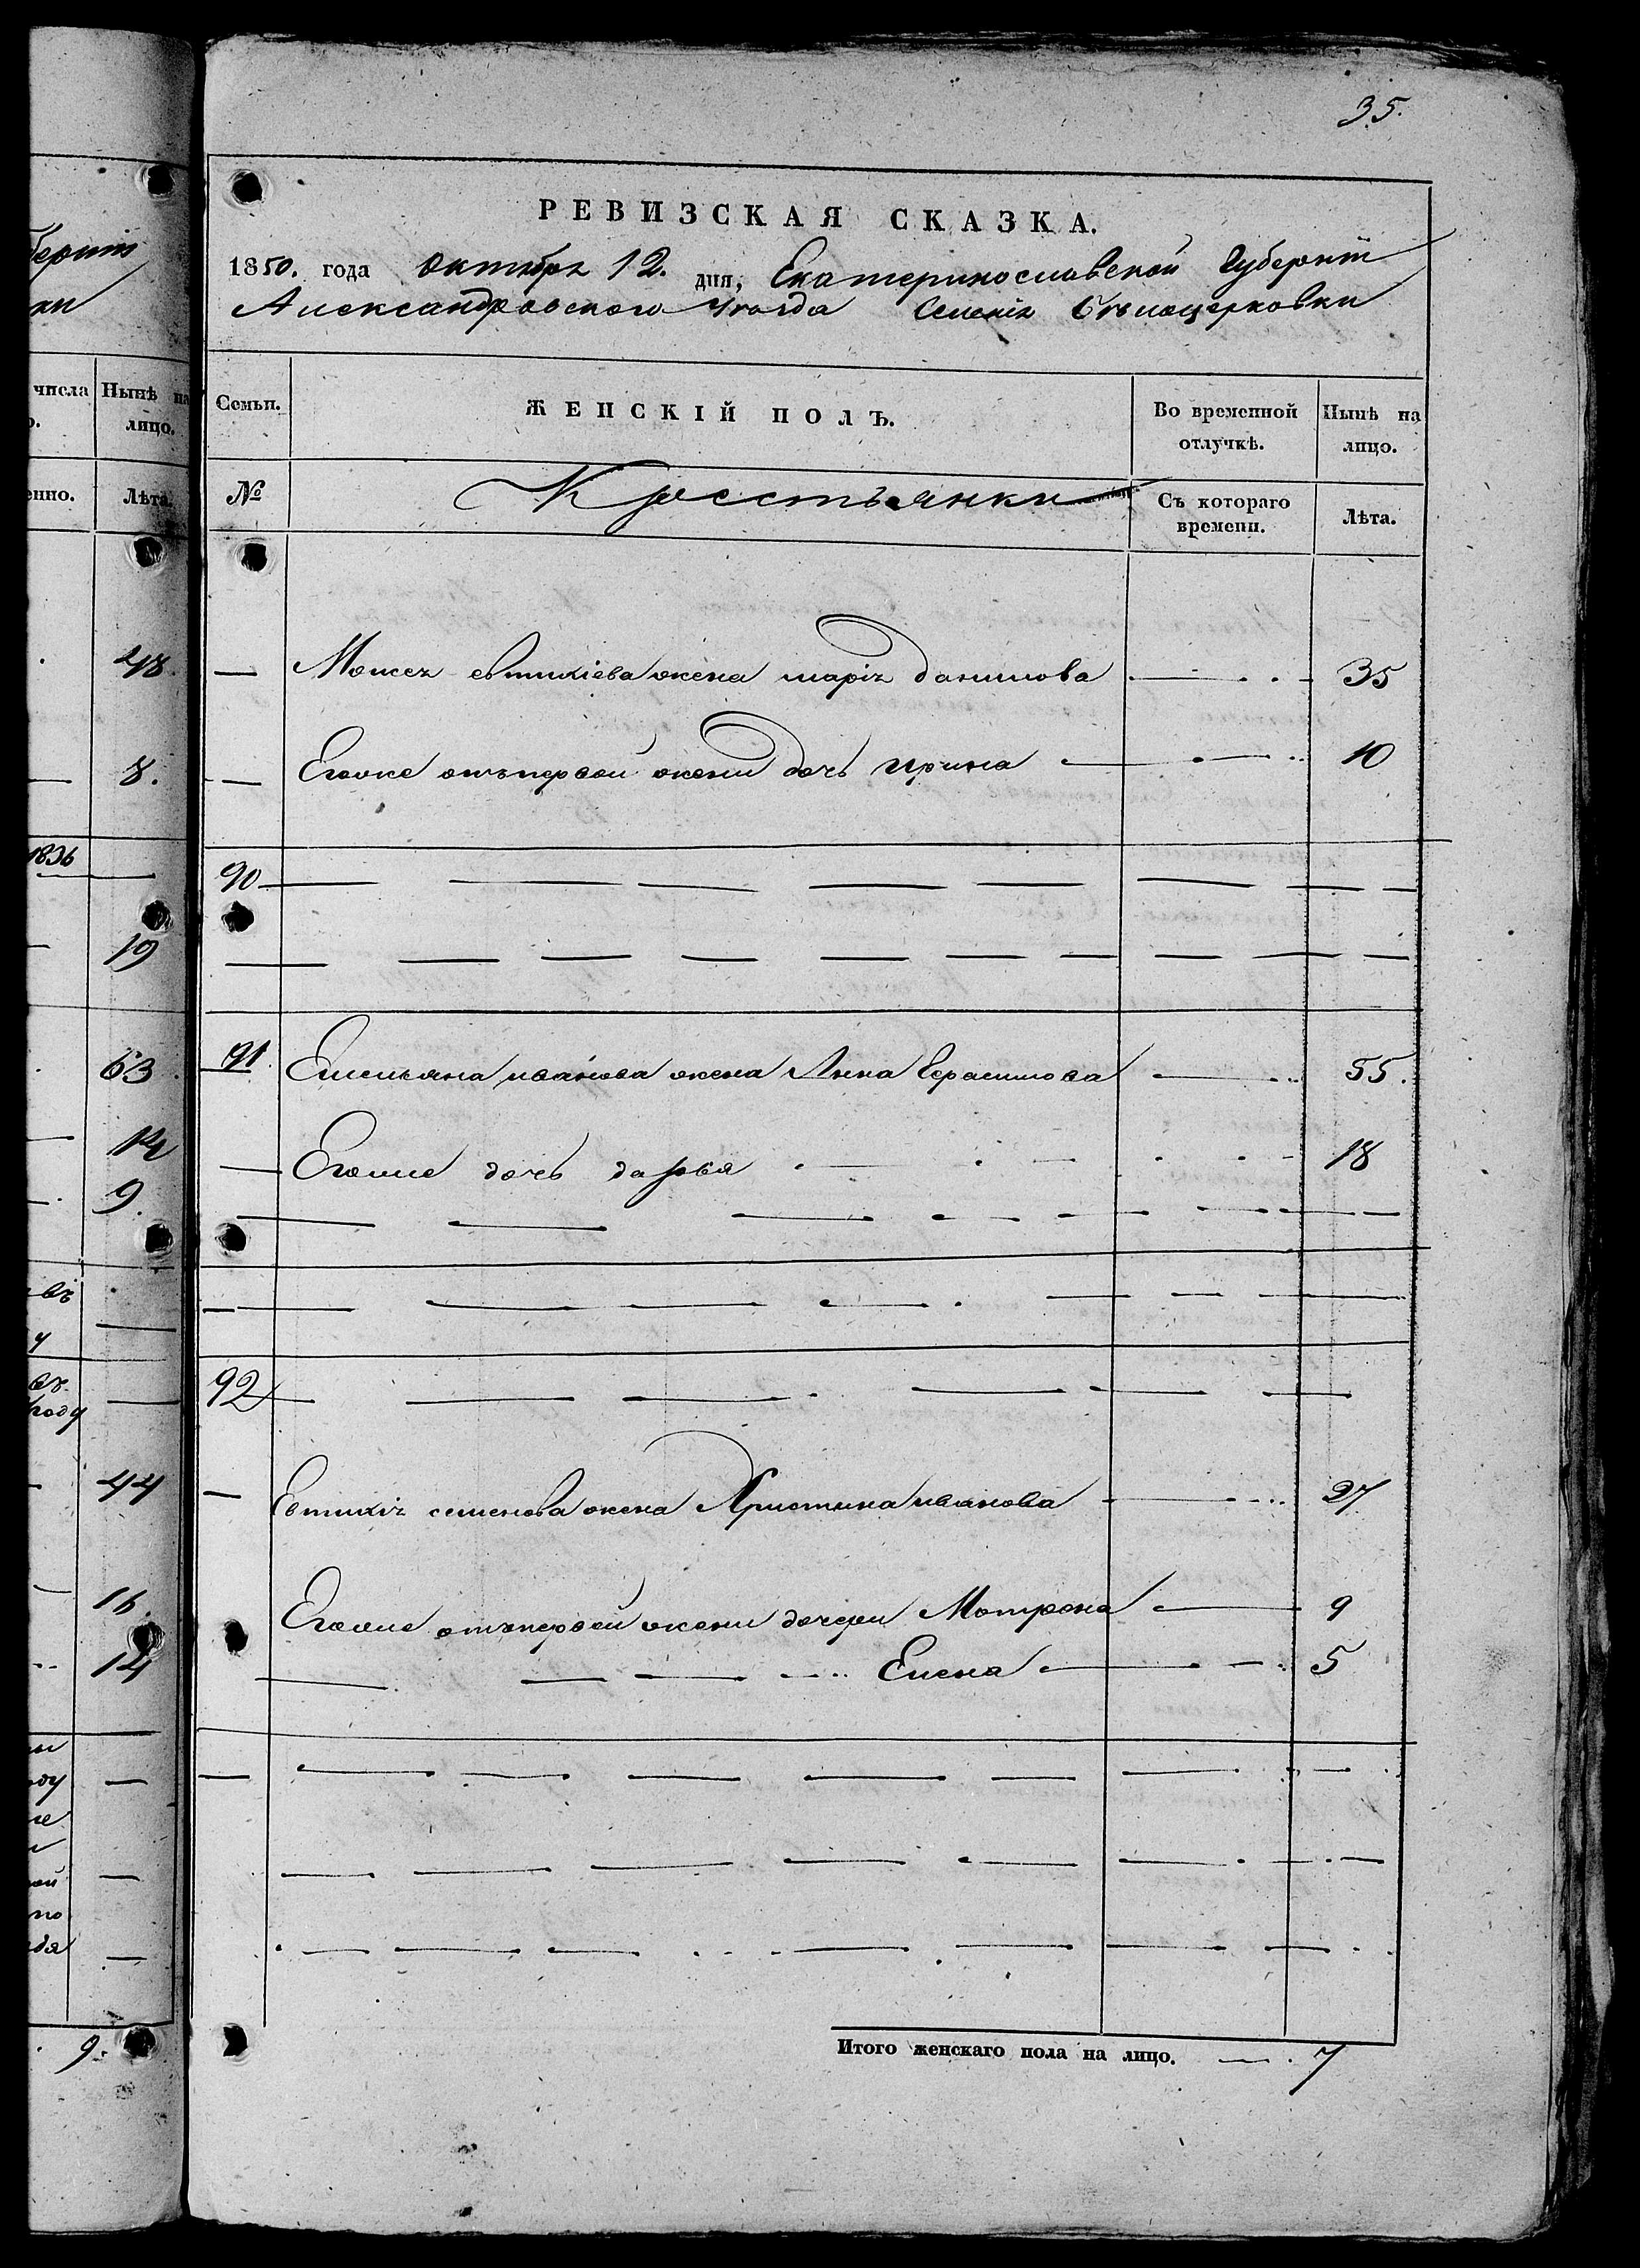 35.
РЕВИЗСКАЯ СКАЗКА.
1850. года Октября 12. дня, Екатеринославской Губерніи
Александровскаго Уѣзда Селенія Бѣлоцерковки
числа Нынѣ на лицо.
Семьи. ЖЕНСКІЙ ПОЛЪ. Во временной отлучкѣ. Нынѣ на лицо.
енно. Лѣта.
№ Крестьянки Съ котораго времени. Лѣта.
48. — Моисея евтихіева жена марія данилова 35
8. — Егоже отъпервой жены дочь ирина 10
1836
90
19
63. 91 Емельяна иванова жена Анна Герасимова 55.
14 — Егоже дочь дарья 18
9.
въ
у
92
году
44 — Евтихія семенова жена Христина иванова 27
16. Егоже отъпервой жены дочери Матрона 9
14 Елена 5
9. Итого женскаго пола на лицо. 7